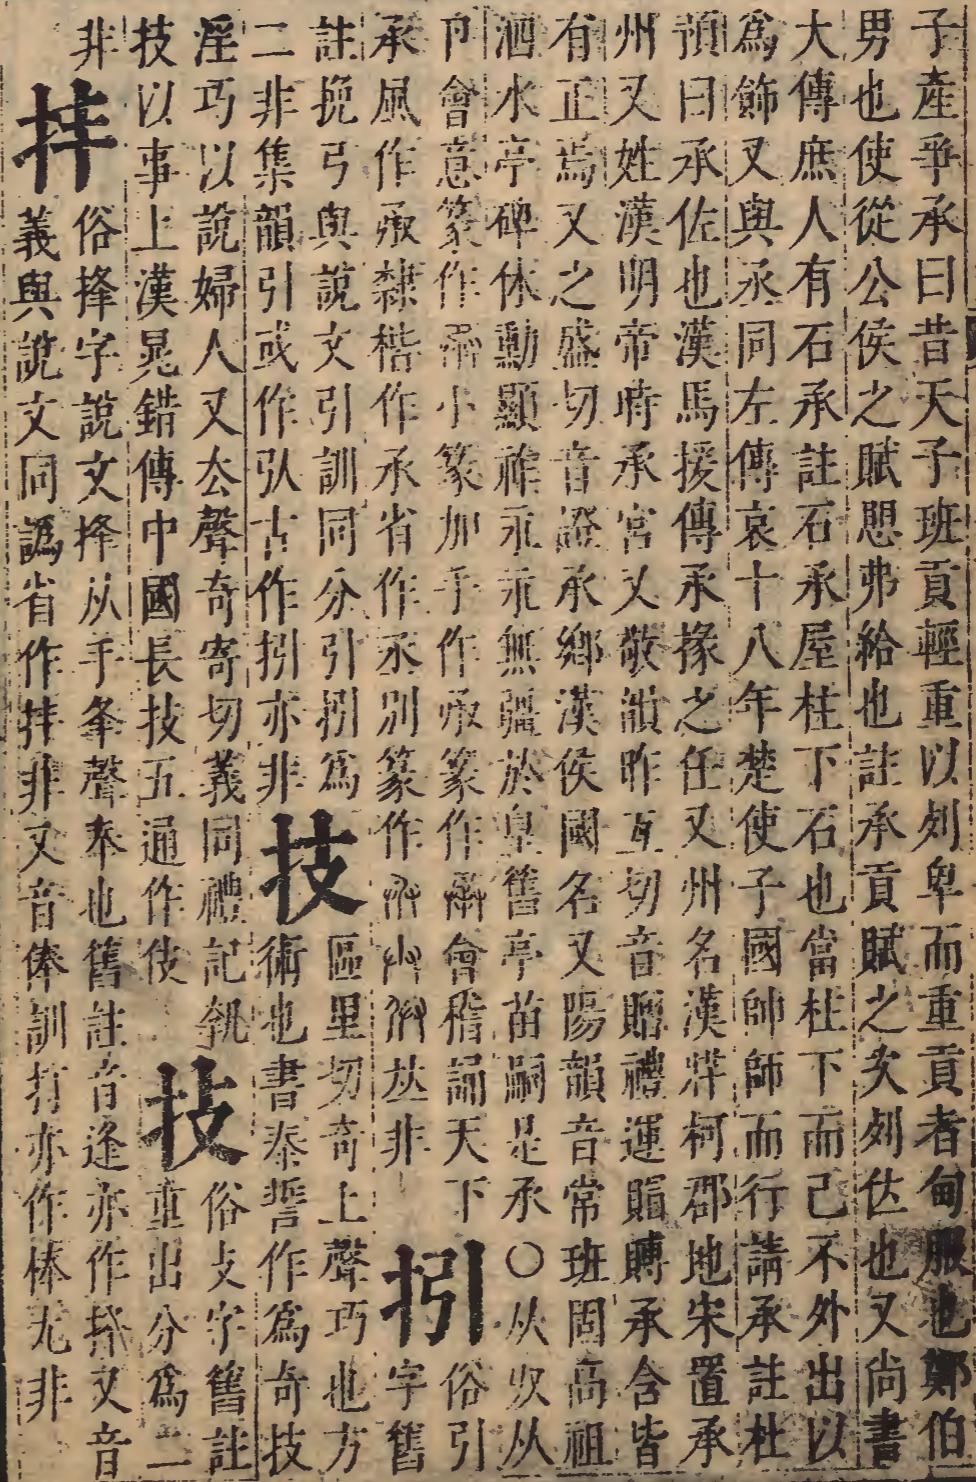 子產爭承曰昔天子班貢輕重以列卑而重貢者甸服也鄭伯
男也使從公侯之賦思弗給也註承貢賦之次列佐也又尚書
大傳庶人有石承註石承屋柱下石也當柱下而已不外出以
為飾又與丞同左傳哀十八年楚使子國帥師而行請承註杜
預曰承佐也漢馬援傳承掾之任又州名漢牂柯郡地宋置承
州又姓漢明帝時承宮又敬韻昨互切音贈禮運賵賻承含皆
有正焉又之盛切音證承鄉漢侯國名又陽韻音常班固高祖
泗水亭碑休勳顯祚永永無疆於皇舊亭苗嗣是承〇从収从
卪會意篆作小篆加手作承篆作會稽誦天下
承風作承隸楷作承省作丞別篆作𠀤非
捌字舊
註挽弓與說文引訓同分引捌為
二非集韻引或作弘古作捌亦非
技區里切奇上聲巧也方
術也書泰誓作為奇技
淫巧以說婦人又去聲奇寄切義同禮記執
技以事上漢晁錯傳中國長技五通作伎
技俗攴字舊註
重出分為二
非
拝俗捀字說文捀从手夆聲奉也舊註音逢亦作捧又音
義與說文同譌省作拝非又音俸訓打亦作棒尤非